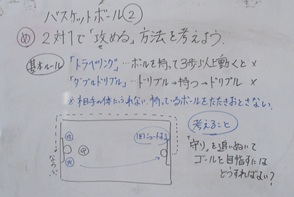 バスケットボール②
め 2対1で「攻める」方法を考えよう。
基本ルール 「トラベリング」…ボールを持って3歩以上動くと×
「ダブルドリブル」…ドリブル→持つ→ドリブル ×
※相手の体にふれない 持っているボールをたたきおとさない。
考えること
「守り」を追いぬいて
ゴールを目指すには
どうすればよい?